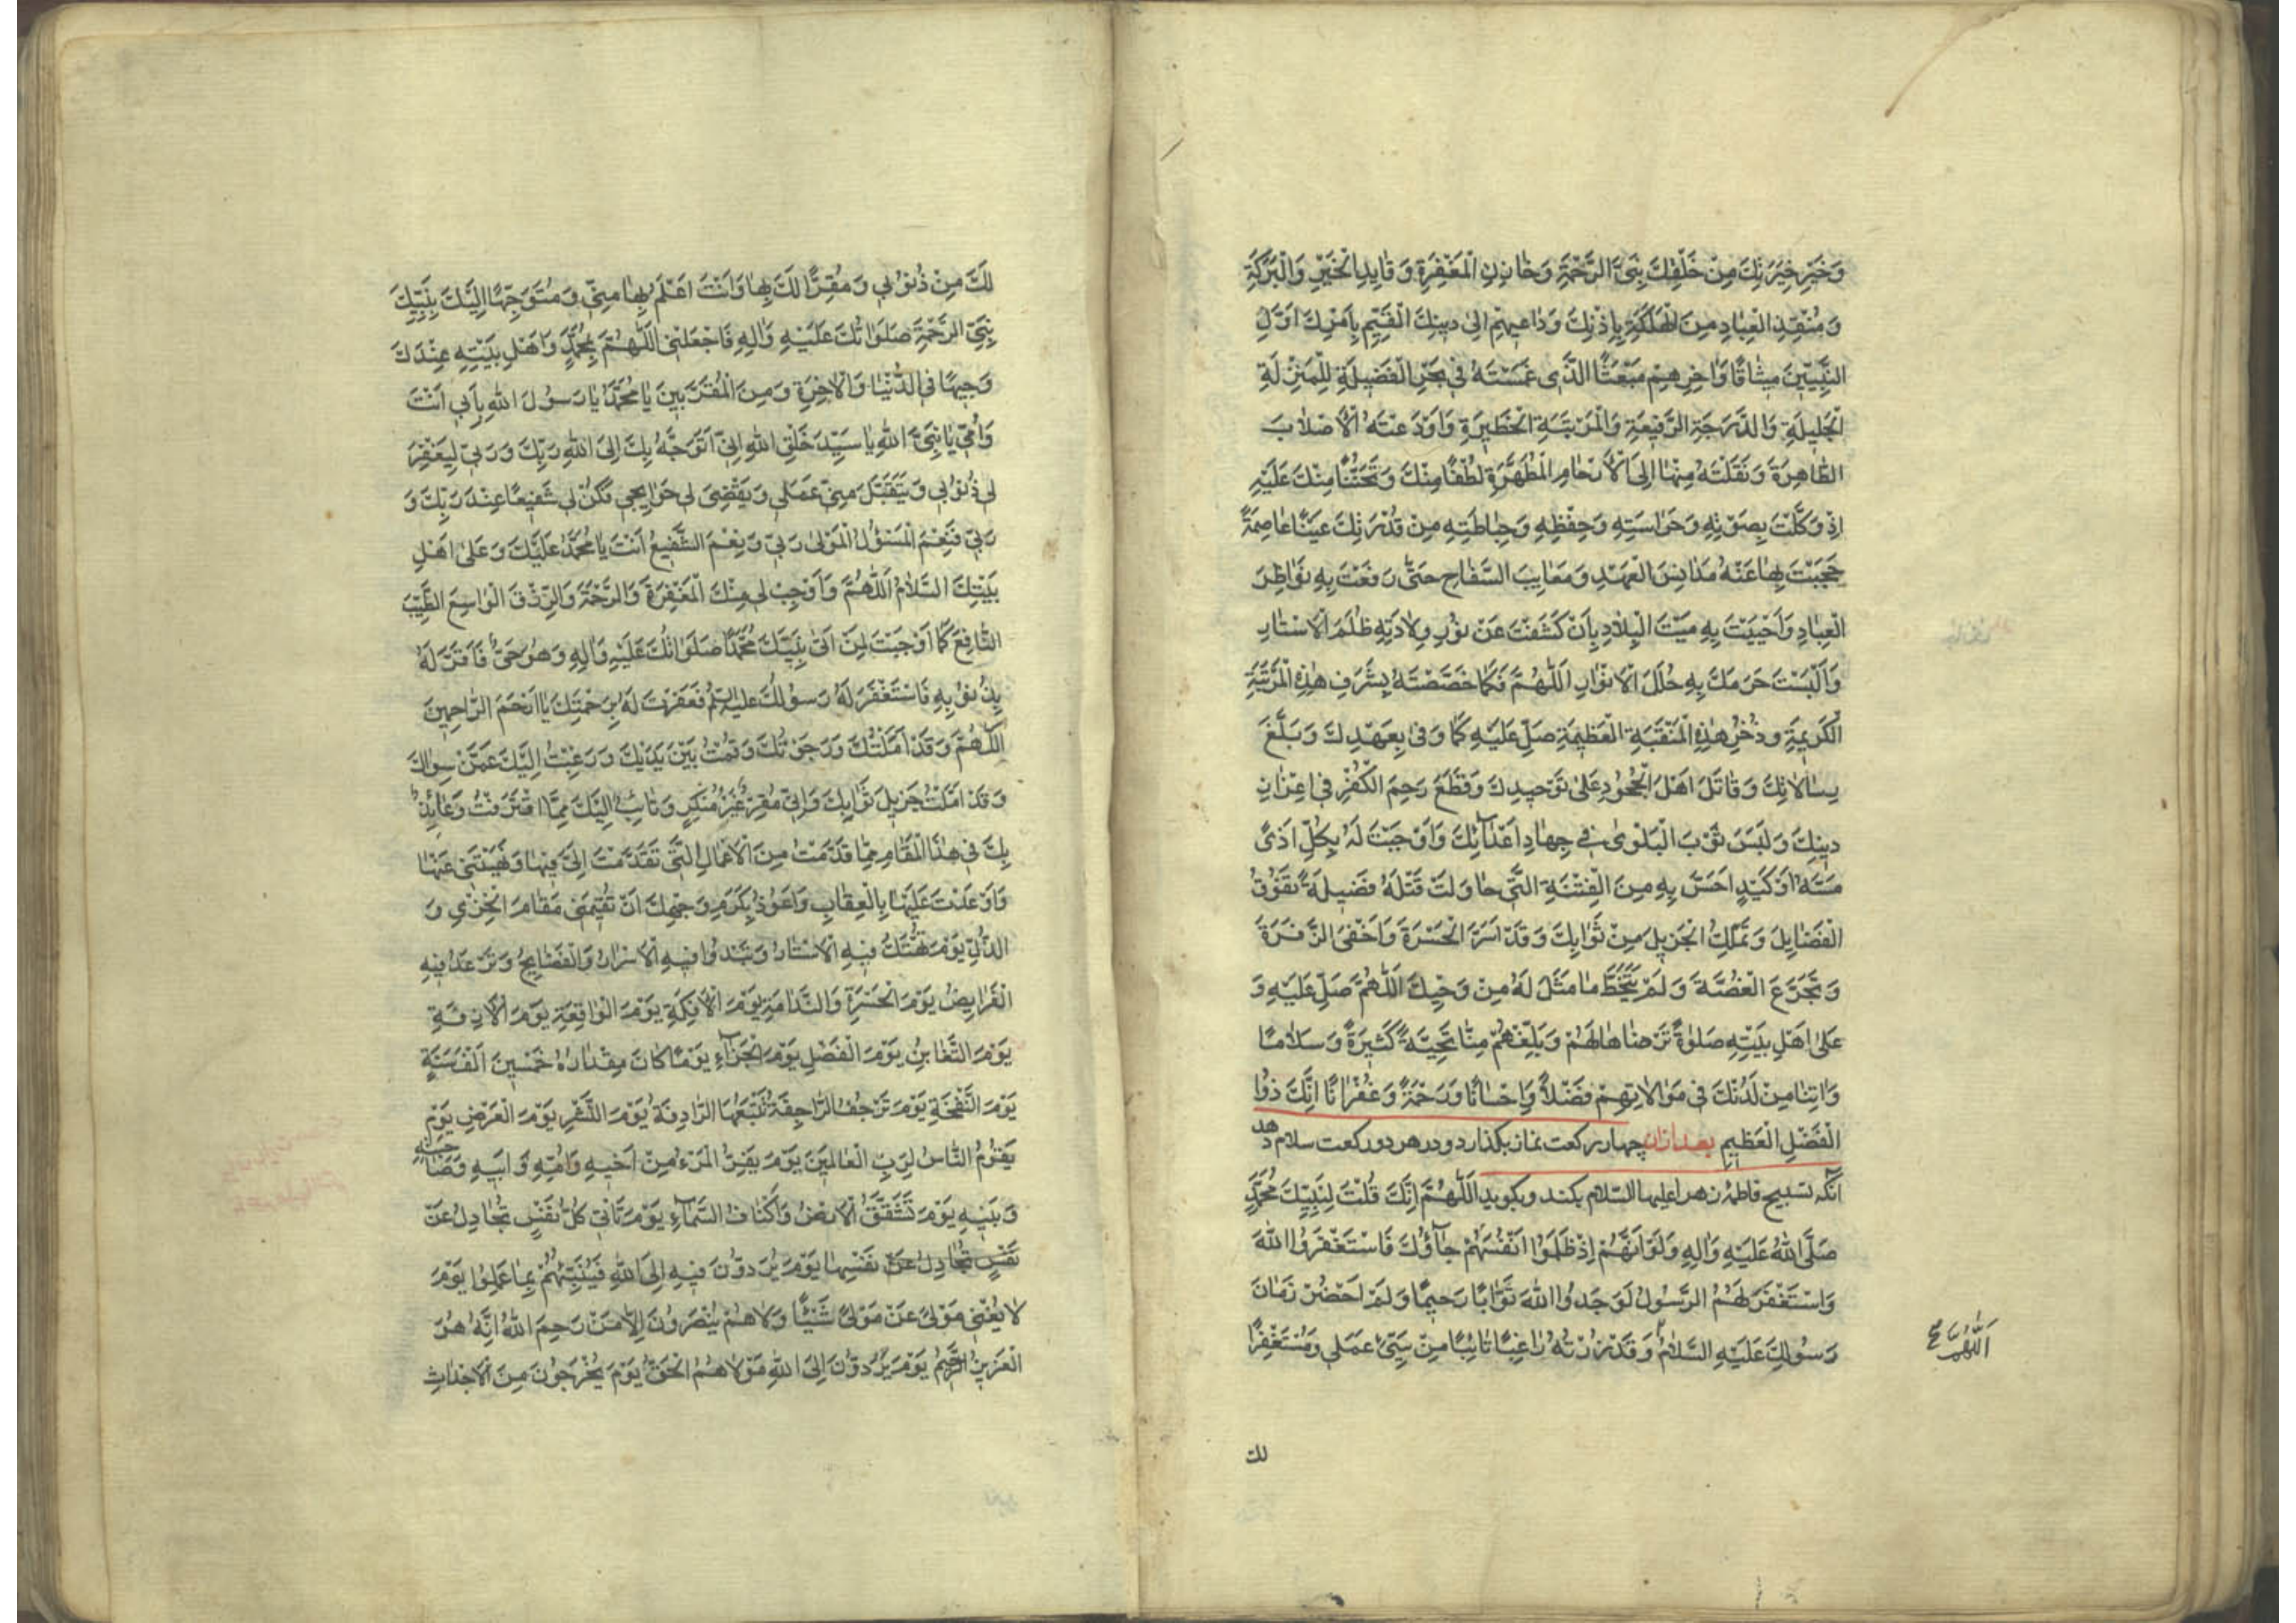 وَخَيْرِ خِيَرَتِكَ مِنْ خَلْقِكَ نَبِيِّ الرَّحْمَةِ وَخَازِنِ الْمَغْفِرَةِ وَقَايِدِ الْخَيْرِ وَالْبَرَكَةِ
وَمُنْقِذِ الْعِبَادِ مِنَ الْهَلَكَةِ بِإِذْنِكَ وَدَاعِيهِمْ اِلىٰ دينِكَ الْقَيِّمِ بِاَمْرِكَ اَوَّلِ
النَّبِيّينَ مِيثَاقًا وَاٰخِرِهِمْ مَبْعَثًا الَّذي غَمَسْتَهُ فِي بَحْرِ الْفَضيلَةِ لِلْمَنْزِلَةِ
الْجَليلَةِ وَالدَّرَجَةِ الرَّفيعَةِ وَالْمَرْتَبَةِ الْخَطيرَةِ وَاَوْدَعْتَهُ الْاَصْلَابَ
الطَّاهِرَةَ وَنَقَلْتَهُ مِنْهَا اِلَى الْاَرْحَامِ الْمُطَهَّرَةِ لُطْفًا مِنْكَ وَتَحَنُّنًا مِنْكَ عَلَيْهِ
اِذْ وَكَّلْتَ بِصَوْنِهِ وَحَرَاسَتِهِ وَحِفْظِهِ وَحِيَاطَتِهِ مِنْ قُدْرَتِكَ عَيْنًا عَاصِمَةً
حَجَبْتَ بِهَا عَنْهُ مَدَانِسَ الْعَهْدِ وَمَعَايِبَ السِّفَاحِ حَتّٰى رَفَعْتَ بِهِ نَوَاظِرَ
الْعِبَادِ وَاَحْيَيْتَ بِهِ مَيْتَ الْبِلَادِ بِاَنْ كَشَفْتَ عَنْ نُورِ وِلَادَتِهِ ظُلَمَ الْاَسْتَارِ
وَاَلْبَسْتَ حَرَمَكَ بِهِ حُلَلَ الْاَنْوَارِ اَللّٰهُمَّ فَكَمَا خَصَصْتَهُ بِشَرَفِ هٰذِهِ الْمَرْتَبَةِ
الْكَريمَةِ وَذُخْرِ هٰذِهِ الْمَنْقَبَةِ الْعَظيمَةِ صَلِّ عَلَيْهِ كَمَا وَفٰى بِعَهْدِكَ وَبَلَّغَ
رِسَالَاتِكَ وَقَاتَلَ اَهْلَ الْجُحُودِ عَلىٰ تَوْحيدِكَ وَقَطَعَ رَحِمَ الْكُفْرِ في اِعْزَازِ
دينِكَ وَلَبِسَ ثَوْبَ الْبَلْوىٰ في جِهَادِ اَعْدَائِكَ وَاَوْجَبْتَ لَهُ بِكُلِّ اَذىً
مَسَّهُ اَوْ كَيْدٍ اَحَسَّ بِهِ مِنَ الْفِئَةِ الَّتي حَاوَلَتْ قَتْلَهُ فَضيلَةً تَفُوقُ
الْفَضَايِلَ وَتَمَلَّكَ الْجَزيلَ مِنْ ثَوَابِكَ وَقَدْ اَسَرَّ الْحَسْرَةَ وَاَخْفَى الزَّفْرَةَ
وَتَجَرَّعَ الْغُصَّةَ وَلَمْ يَتَخَطَّ مَا مَثَّلَ لَهُ مِنْ وَحْيِكَ اَللّٰهُمَّ صَلِّ عَلَيْهِ وَ
عَلىٰ اَهْلِ بَيْتِهِ صَلٰوةً تَرْضَاهَا لَهُمْ وَبَلِّغْهُمْ مِنَّا تَحِيَّةً كَثيرَةً وَسَلَامًا
وَاٰتِنَا مِنْ لَدُنْكَ في مُوَالَاتِهِمْ فَضْلًا وَاِحْسَانًا وَرَحْمَةً وَغُفْرَانًا اِنَّكَ ذُوا
الْفَضْلِ الْعَظيمِ بعد ازان چهار ركعت نماز بكذارد و در هر دو ركعت سلام دهد
آنكه تسبيح فاطمه زهرا عليها السلام بكند وبكويد اَللّٰهُمَّ اِنَّكَ قُلْتَ لِنَبِيِّكَ مُحَمَّدٍ
صَلَّى اللهُ عَلَيْهِ وَاٰلِهِ وَلَوْ اَنَّهُمْ اِذْ ظَلَمُوا اَنْفُسَهُمْ جَآؤُكَ فَاسْتَغْفَرُوا اللهَ
وَاسْتَغْفَرَ لَهُمُ الرَّسُولُ لَوَجَدُوا اللهَ تَوَّابًا رَحيمًا وَلَمْ اَحْضُرْ زَمَانَ
رَسُولِكَ عَلَيْهِ السَّلَامُ وَقَدْ زُرْتُهُ رَاغِبًا تَائِبًا مِنْ سَيِّئِ عَمَلي وَمُسْتَغْفِرًا
اَللّٰهُمَّ
لك
لَكَ مِنْ ذُنُوبي وَمُقِرًّا لَكَ بِهَا وَاَنْتَ اَعْلَمُ بِهَا مِنّي وَمُتَوَجِّهًا اِلَيْكَ بِنَبِيِّكَ
نَبِيِّ الرَّحْمَةِ صَلَوَاتُكَ عَلَيْهِ وَاٰلِهِ فَاجْعَلْنِي اللّٰهُمَّ بِمُحَمَّدٍ وَاَهْلِ بَيْتِهِ عِنْدَكَ
وَجيهًا فِي الدُّنْيَا وَالْاٰخِرَةِ وَمِنَ الْمُقَرَّبينَ يَا مُحَمَّدُ يَا رَسُولَ اللهِ بِاَبي اَنْتَ
وَاُمّي يَا نَبِيَّ اللهِ يَا سَيِّدَ خَلْقِ اللهِ اِنّي اَتَوَجَّهُ بِكَ اِلَى اللهِ رَبِّكَ وَرَبّي لِيَغْفِرَ
لي ذُنُوبي وَيَتَقَبَّلَ مِنّي عَمَلي وَيَقْضِيَ لي حَوَايِجي فَكُنْ لي شَفيعًا عِنْدَ رَبِّكَ وَ
رَبّي فَنِعْمَ الْمَسْؤُلُ الْمَوْلىٰ رَبّي وَنِعْمَ الشَّفيعُ اَنْتَ يَا مُحَمَّدُ عَلَيْكَ وَعَلىٰ اَهْلِ
بَيْتِكَ السَّلَامُ اَللّٰهُمَّ وَاَوْجِبْ لي مِنْكَ الْمَغْفِرَةَ وَالرَّحْمَةَ وَالرِّزْقَ الْوَاسِعَ الطَّيِّبَ
النَّافِعَ كَمَا اَوْجَبْتَ لِمَنْ اَتىٰ نَبِيَّكَ مُحَمَّدًا صَلَوَاتُكَ عَلَيْهِ وَاٰلِهِ وَهُوَ حَيٌّ فَاَقَرَّ لَهُ
بِذُنُوبِهِ فَاسْتَغْفَرَ لَهُ رَسُولُكَ عليه السلام فَغَفَرْتَ لَهُ بِرَحْمَتِكَ يَا اَرْحَمَ الرَّاحِمينَ
اَللّٰهُمَّ وَقَدْ اَمَّلْتُكَ وَرَجَوْتُكَ وَقُمْتُ بَيْنَ يَدَيْكَ وَرَغِبْتُ اِلَيْكَ عَمَّنْ سِوَاكَ
وَقَدْ اَمَّلْتُ جَزيلَ ثَوَابِكَ وَاِنّي مُقِرٌّ غَيْرُ مُنْكِرٍ وَتَائِبٌ اِلَيْكَ مِمَّا اقْتَرَفْتُ وَعَائِذٌ
بِكَ في هٰذَا الْمَقَامِ مِمَّا قَدَّمْتُ مِنَ الْاَعْمَالِ الَّتي تَقَدَّمْتَ اِلَيَّ فيهَا وَنَهَيْتَني عَنْهَا
وَاَوْعَدْتَ عَلَيْهَا بِالْعِقَابِ وَاَعُوذُ بِكَرَمِ وَجْهِكَ اَنْ تُقيمَني مَقَامَ الْخِزْيِ وَ
الذُّلِّ يَوْمَ تُهْتَكُ فيهِ الْاَسْتَارُ وَتَبْدُوا فيهِ الْاَسْرَارُ وَالْفَضَايِحُ وَتَرْعَدُ فيهِ
الْفَرَايِصُ يَوْمَ الْحَسْرَةِ وَالنَّدَامَةِ يَوْمَ الْاَفِكَةِ يَوْمَ الْوَاقِعَةِ يَوْمَ الْاٰزِفَةِ
يَوْمَ التَّغَابُنِ يَوْمَ الْفَصْلِ يَوْمَ الْجَزَآءِ يَوْمًا كَانَ مِقْدَارُهُ خَمْسينَ اَلْفَ سَنَةٍ
يَوْمَ النَّفْخَةِ يَوْمَ تَرْجُفُ الرَّاجِفَةُ تَتْبَعُهَا الرَّادِفَةُ يَوْمَ النَّشْرِ يَوْمَ الْعَرْضِ يَوْمَ
يَقُومُ النَّاسُ لِرَبِّ الْعَالَمينَ يَوْمَ يَفِرُّ الْمَرْءُ مِنْ اَخيهِ وَاُمِّهِ وَاَبيهِ وَصَاحِبَتِهِ
وَبَنيهِ يَوْمَ تَشَقَّقُ الْاَرْضُ وَاَكْنَافُ السَّمَآءِ يَوْمَ تَأْتي كُلُّ نَفْسٍ تُجَادِلُ عَنْ
نَفْسٍ تُجَادِلُ عَنْ نَفْسِهَا يَوْمَ يُرَدُّونَ فيهِ اِلَى اللهِ فَيُنَبِّئُهُمْ بِمَا عَمِلُوا يَوْمَ
لَا يُغْني مَوْلىً عَنْ مَوْلىً شَيْئًا وَلَا هُمْ يُنْصَرُونَ اِلَّا مَنْ رَحِمَ اللهُ اِنَّهُ هُوَ
الْعَزيزُ الرَّحيمُ يَوْمَ يُرَدُّونَ اِلَى اللهِ مَوْلَاهُمُ الْحَقِّ يَوْمَ يَخْرُجُونَ مِنَ الْاَجْدَاثِ